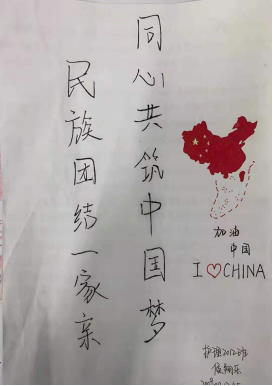 同心共筑中国梦
民族团结一家亲
加油
中国
I ❤ CHINA
护理2012班